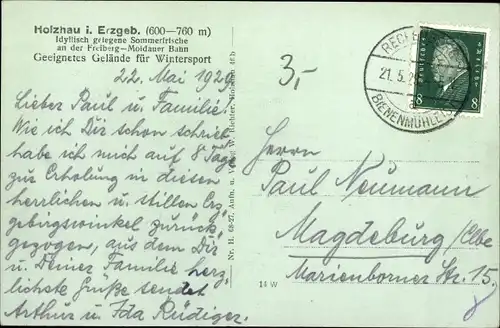 Holzhau i. Erzgeb. (600—760 m)
Idyllisch gelegene Sommerfrische
an der Freiberg—Moldauer Bahn
Geeignetes Gelände für Wintersport
22. Mai 1929
Lieber Paul u. Familie!
Wie ich Dir schon schrieb
habe ich mich auf 8 Tage
zur Erholung in diesen
herrlichen u. stillen Erz-
gebirgswinkel zurück-
gezogen, aus dem Dir
u. Deiner Familie herz-
lichste Grüße sendet
Arthur u. Ida Rüdiger.
Nr. H. 68-27, Aufn. u. Verlag W. Richter,
14 W
3,-
21.5.
BIENENMÜHLE
8 8
Herrn
Paul Neumann
Magdeburg/Elbe
Marienborner Str. 15.